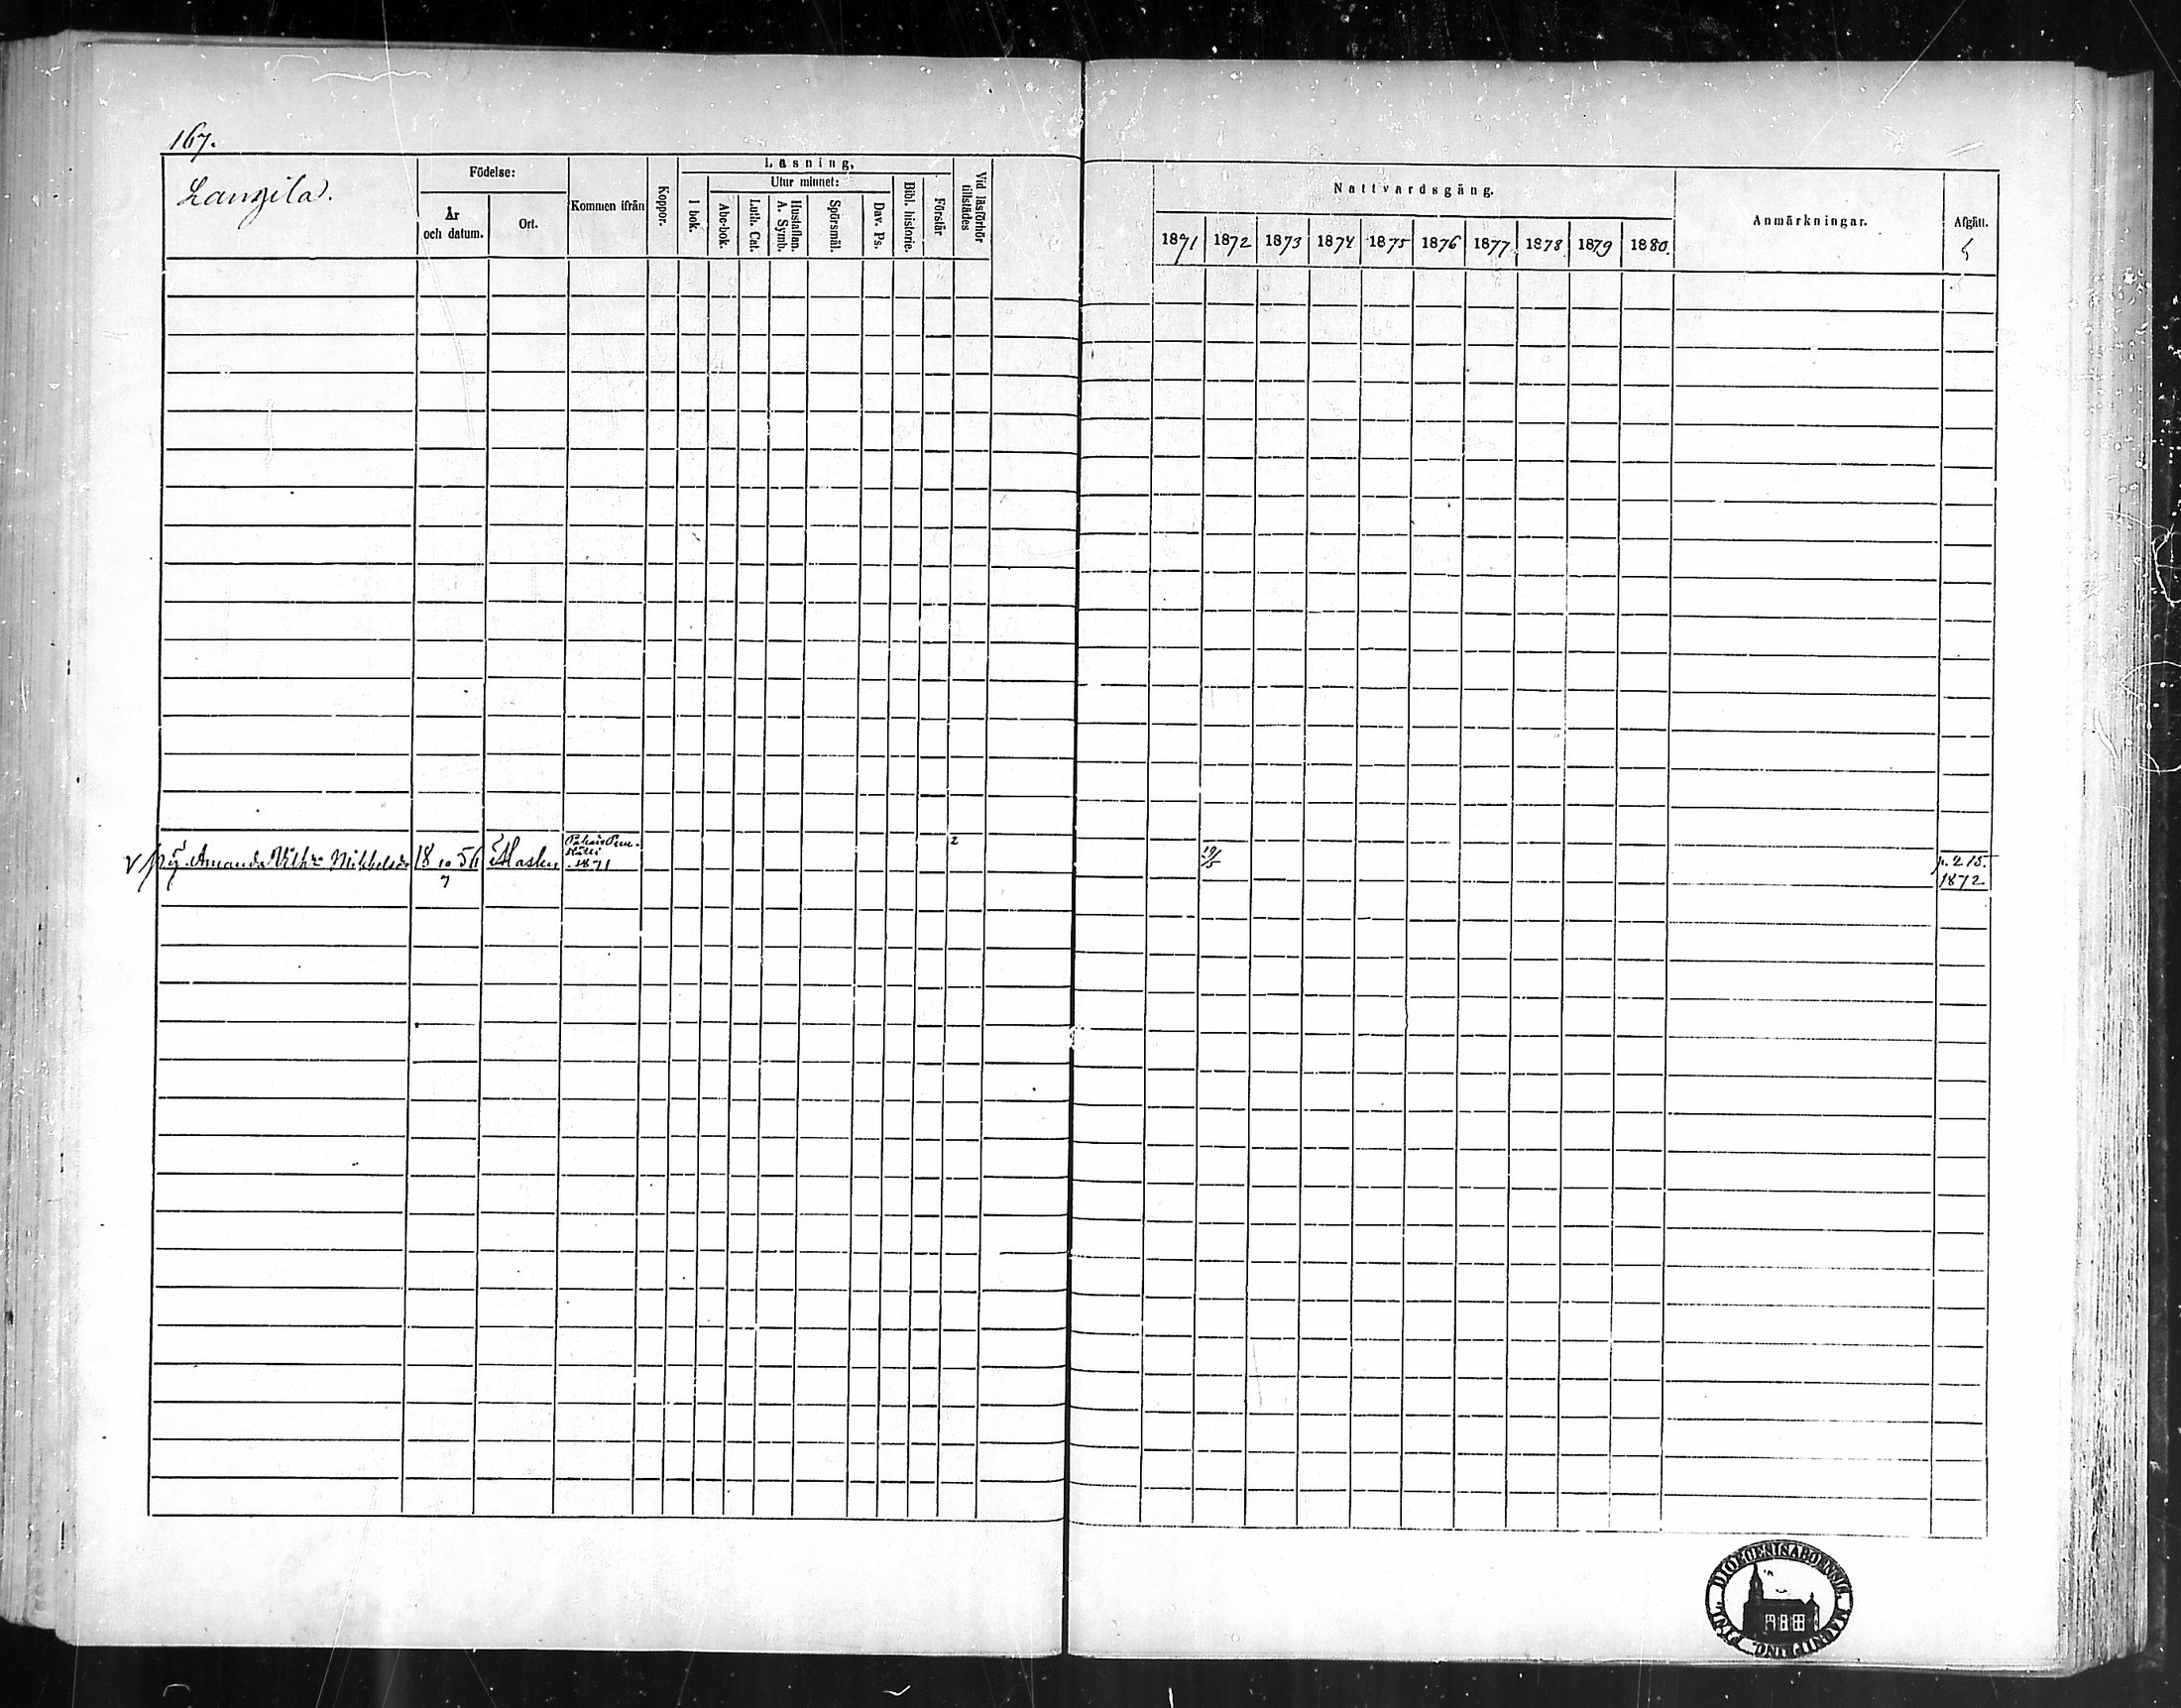 167.
Lanzila.
Födelse:
År
och datum.
Ort.
Kommen ifrån
Koppor.
Läsning,
I bok.
Utur minnet:
Abc-bok.
Luth. Cat.
Hustaflan.
A. Symb.
Spörsmål.
Dav. Ps.
Bibl. historie.
Förstår
Vid läsförhör
tillstädes
Nattvardsgång.
1871 1872 1873 1874 1875 1876 1877 1878 1879 1880.
Anmärkningar.
Afgått.
Amanda Vilh:a Mikkelsdr 18 10/7 56 Masku
1871
2
19/5
p. 215.
1872
DIOECESIS ABOENSIS